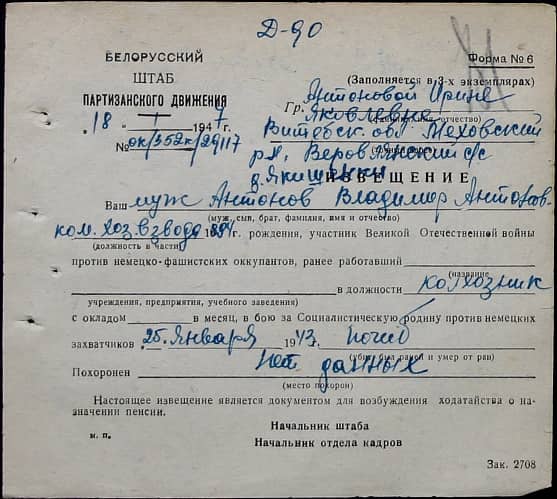 Д-90
Форма № 6
БЕЛОРУССКИЙ
ШТАБ
ПАРТИЗАНСКОГО ДВИЖЕНИЯ
"18" I 1947 г.
№ ок/352к/29117
(Заполняется в 3-х экземплярах)
Гр. Антоновой Ирине
Яковлевне
(фамилия, имя, отчество)
Витебск. обл Меховский
р-н, Веровлянский с/с
д. Якищенки
ИЗВЕЩЕНИЕ
Ваш муж Антонов Владимир Антонов.
(муж, сын, брат, фамилия, имя и отчество)
ком. хоз. взвода 1894 г. рождения, участник Великой Отечественной войны
(должность в части)
против немецко-фашистских оккупантов, ранее работавший
(название
в должности колхозник
учреждения, предприятия, учебного заведения)
с окладом в месяц, в бою за Социалистическую родину против немецких
захватчиков 25 января 1943 г. погиб
(убит, был ранен и умер от ран)
Похоронен Нет данных
(место похорон)
Настоящее извещение является документом для возбуждения ходатайства о на-
значении пенсии.
Начальник штаба
м. п.
Начальник отдела кадров
Зак. 2708